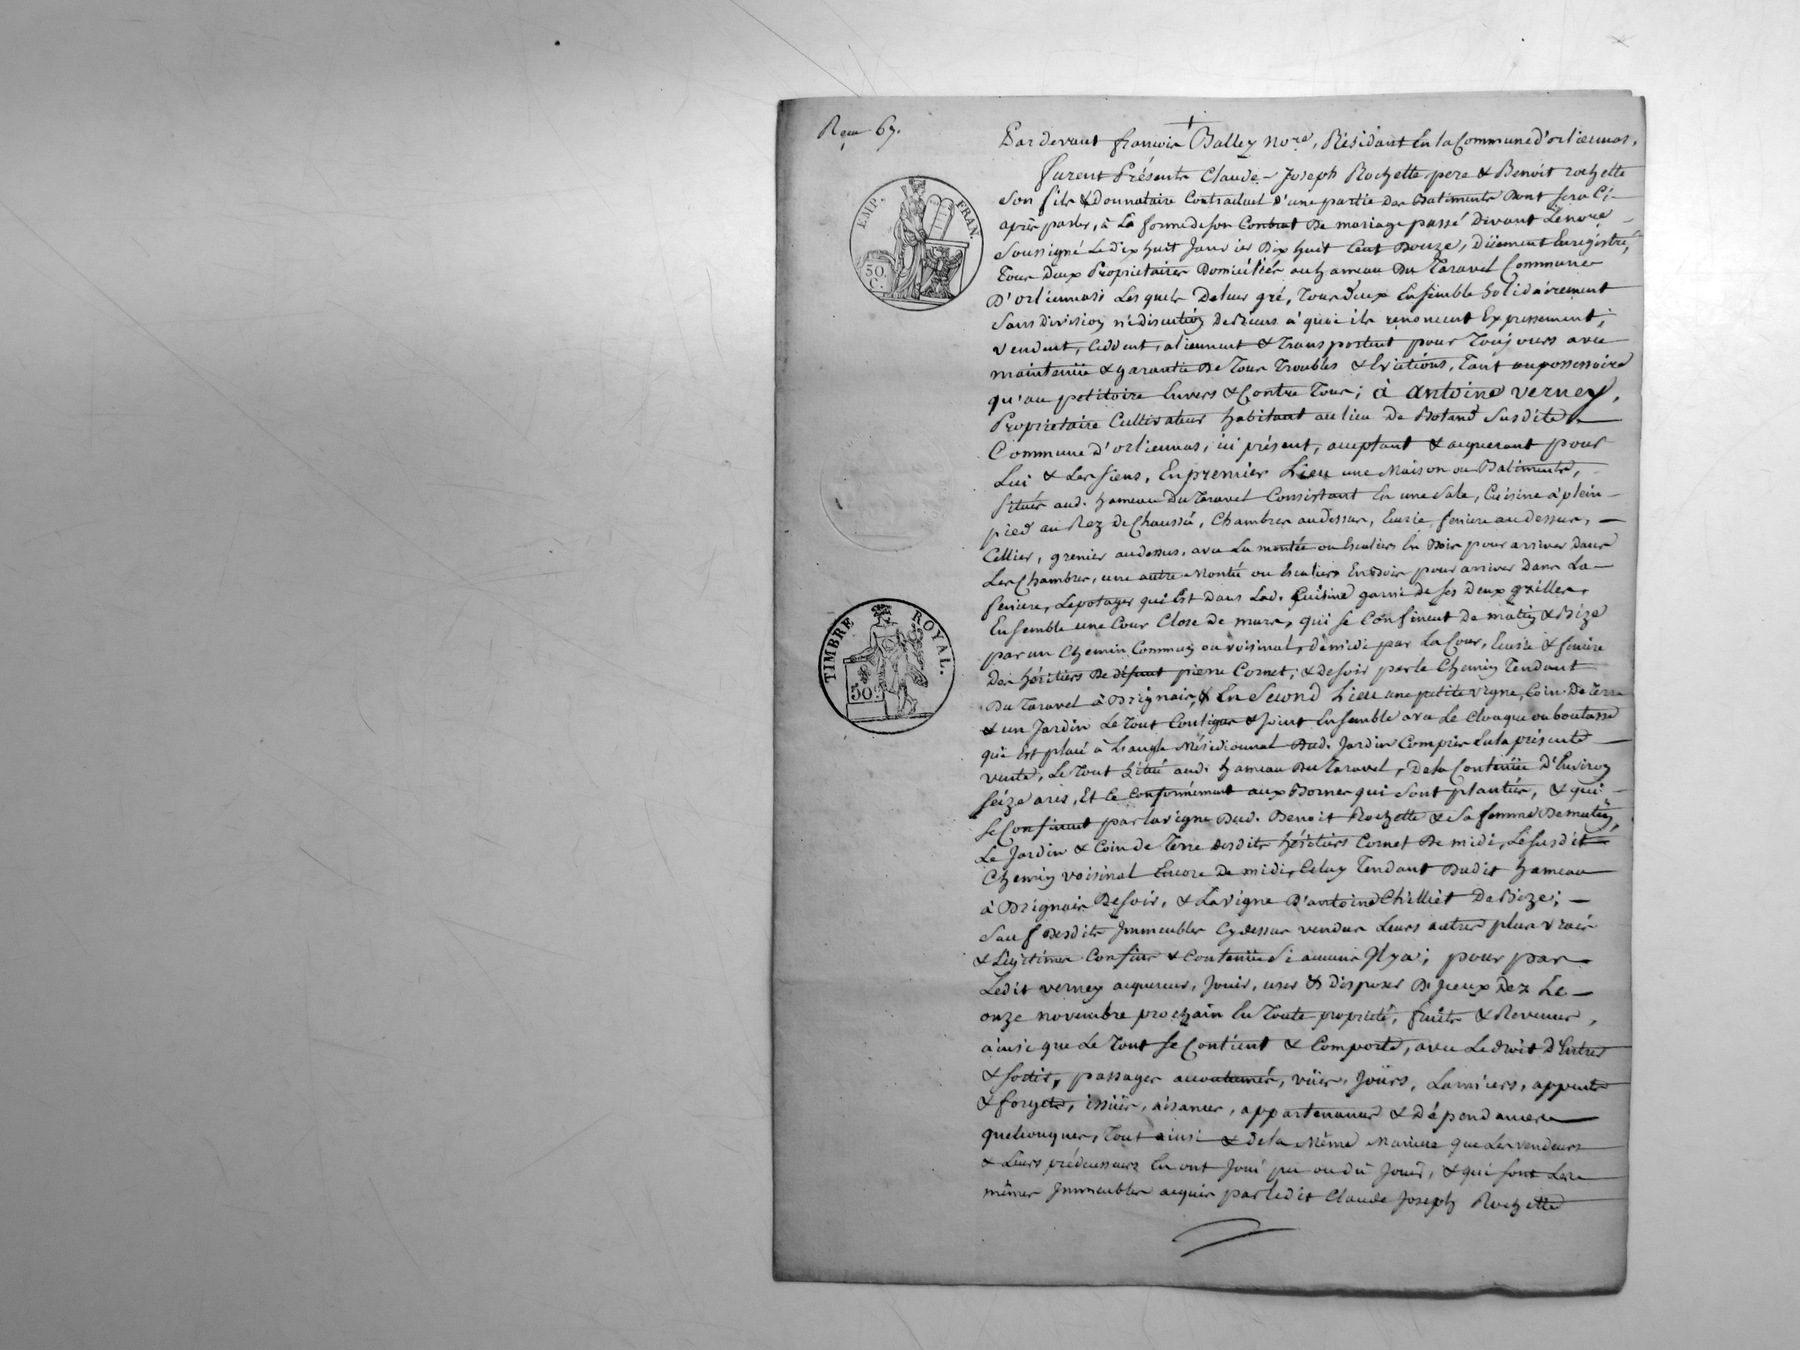 Reçu 67.
Pardevant françois Balley No.re, Résidant En la Commune d'orliennas,
EMP. FRAN.
50. C.
furent Présents Claude-Joseph Rochette pere & Benoit rochette
son fils & donnataire Contractuel d'une partie des Batiments Dont sera Ci-
après parlé, à La forme de son Contrat De mariage passé Devant Le no.re
soussigné Le dix huit Janvier Dix huit Cent Douze, Düement Enregistré,
Tous Deux Propriétaires Domiciliés au hameau Du Taravel Commune
D'orliennas Lesquels De leur gré, Tous deux Ensemble Solidairement
Sans division ni discution de Biens à quoi ils renoncent Expressement;
vendent, Ceddent, aliennent & Transportent pour Toujours avec
maintenüe & garantie De Tous Troubles & Evictions, Tant au possessoire
qu'au petitoire Envers & Contre Tous; à antoine verney,
Propriétaire Cultivateur habitant au lieu De Susdite
Commune d'orliennas, ici présent, acceptant & acquerant pour
Lui & Les siens, En premier Lieu une Maison ou Batiments,
situés aud. hameau Du Taravel Consistant En une Sale, Cuisine à plein-
pied au Rez de Chaussée, Chambres au Dessus, Ecurie, feniere au dessus,
Cellier, grenier au dessus, avec La montée ou Escaliers En Bois pour arriver Dans
Les Chambres, une autre Montée ou Escaliers En Bois pour arriver Dans La
feniere, Le potager qui Est Dans Lad. Cuisine garni de ses Deux grilles,
Ensemble une Cour Close de murs, qui se Confinent De matin & Bize
par un Chemin Commun ou voisinal, de midi par La Cour, Ecurie & feniere
Des héritiers De défunt pierre Cornet; & de soir par le Chemin Tendant
TIMBRE ROYAL.
50.
Du Taravel à Brignais, & En Second Lieu une petite vigne, Coin De Terre
& un Jardin Le Tout Contigus & Joint Ensemble avec Le Cloaque ou boutasse
qui Est placé à L'angle Méridional Dud. Jardin Compris En la présente
vente, Le Tout situé aud. hameau Du Taravel, De la Contenüe D'Environ
seize ares, Et Ce Conformément aux Bornes qui sont plantées, & qui
se Confinent par La vigne Dud. Benoit Rochette & Sa femme De matin,
Le Jardin & Coin de Terre desdits héritiers Cornet De midi, Le susdit
Chemin voisinal Encore De midi, Celuy Tendant Dudit hameau
à Brignais De soir, & La vigne D'antoine Chilliet De Bize;
Sauf Desdits Immeubles Cy dessus vendus Leurs autres plus vrais
& Légitimes Confins & Contenüe Si aucuns Il y a; pour par
Ledit verney acquereur, Jouir, user & disposer D'Iceux Dez Le
onze novembre prochain En Toute propriété, fruits & Revenus,
ainsi que Le Tout se Contient & Comporte, avec Le droit D'Entrer
& sortir, passages accoutumés, vües, Jours, Larmiers, appents
& forgets, issües, aisances, appartenances & Dépendances
quelconques, Tout ainsi & de la Même Maniere que Les vendeurs
& Leurs prédecesseurs En ont Joui pu ou dû Jouir, & qui sont Les
mêmes Immeubles acquis par Ledit Claude Joseph Rochette